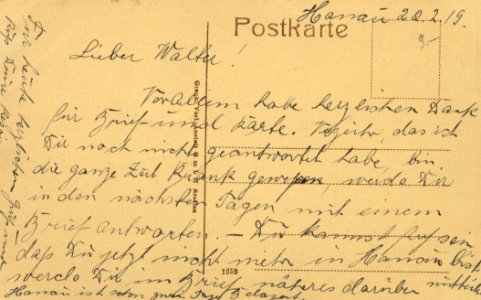 Hanau 20.2.19.
Postkarte
Lieber Walter!
Vor Allem habe herzlichen Dank
für Brief- und Karte. Verzeih, das ich
Dir noch nicht geantwortet habe, bin
die ganze Zeit krank gewesen, werde Dir
in den nächsten Tagen mit einem
Brief antworten – Du kannst froh sein
daß Du jetzt nicht mehr in Hanau bist
werde Dir im Brief näheres darüber mitteilen
Hanau ist schon zwei Tage
1259